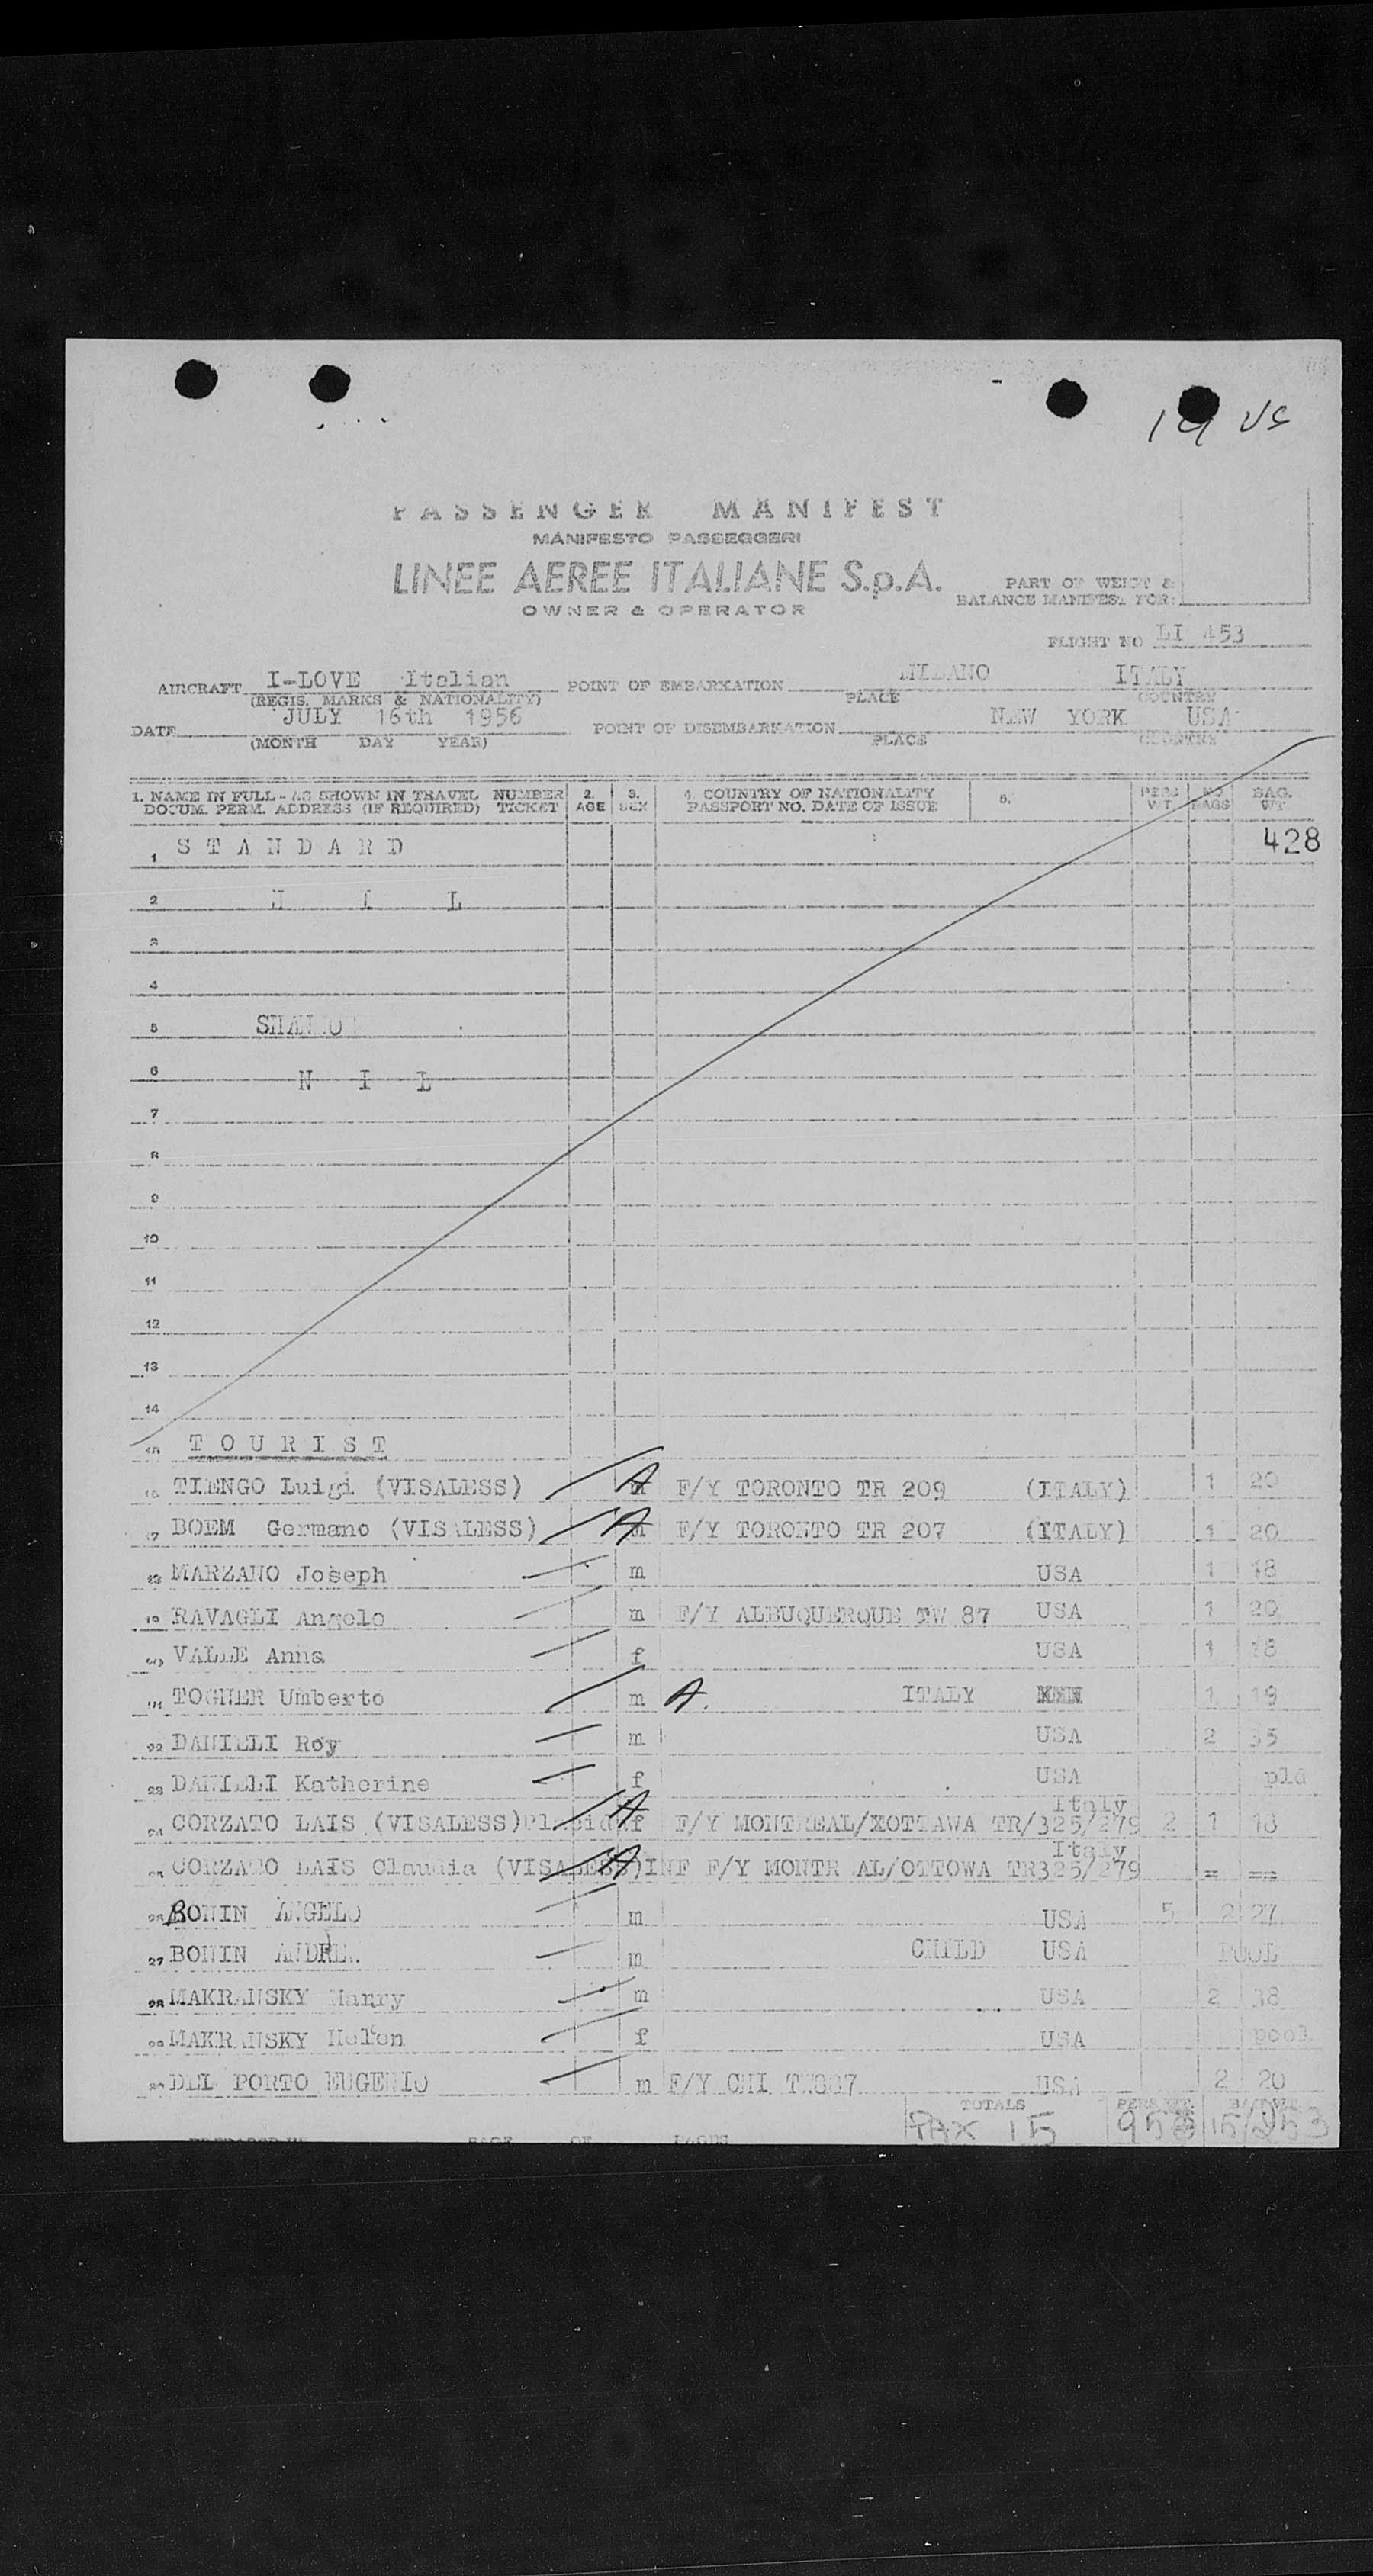 19 US
PASSENGER MANIFEST
MANIFESTO PASSEGGERI
LINEE AEREE ITALIANE S.p.A.
OWNER & OPERATOR
PART OF WEIGT &
BALANCE MANIFEST FOR:
FLIGHT NO LI 453
AIRCRAFT I-LOVE Italian POINT OF EMBARKATION MILANO ITALY
(REGIS. MARKS & NATIONALITY) PLACE COUNTRY
DATE JULY 16th 1956 POINT OF DISEMBARKATION NEW YORK USA
(MONTH DAY YEAR) PLACE COUNTRY
1. NAME IN FULL - AS SHOWN IN TRAVEL NUMBER 2. 3. 4. COUNTRY OF NATIONALITY 5. PERS NO BAG.
DOCUM. PERM. ADDRESS (IF REQUIRED) TICKET AGE SEX PASSPORT NO. DATE OF ISSUE WT. BAGS WT.
1 STANDARD 428
2 N I L
3
4
5 SHANNO
6 N I L
7
8
9
10
11
12
13
14
15 TOURIST
16 TIENGO Luigi (VISALESS) A m F/Y TORONTO TR 209 (ITALY) 1 20
17 BOEM Germano (VISALESS) A m F/Y TORONTO TR 207 (ITALY) 1 20
18 MARZANO Joseph m USA 1 18
19 RAVAGLI Angelo m F/Y ALBUQUERQUE TW 87 USA 1 20
20 VALLE Anna f USA 1 18
21 TOGNER Umberto m A. ITALY 1 19
22 DANIELI Roy m USA 2 35
23 DANIELI Katherine f USA pld
Italy
24 CORZATO LAIS (VISALESS) A f F/Y MONTREAL/XOTTAWA TR/325/279 2 1 18
Italy
25 CORZATO LAIS Claudia (VISALESS) A INF F/Y MONTREAL/OTTOWA TR325/279 = ==
26 BONIN ANGELO m USA 5 2 27
27 BONIN ANDREA m CHILD USA POOL
28 MAKRANSKY Harry m USA 2 38
29 MAKRANSKY Helen f USA pool
30 DEL PORTO EUGENIO m F/Y CHI USA 2 20
TOTALS PERS WT.
PAX 15 15/253
PAGE OF PAGES